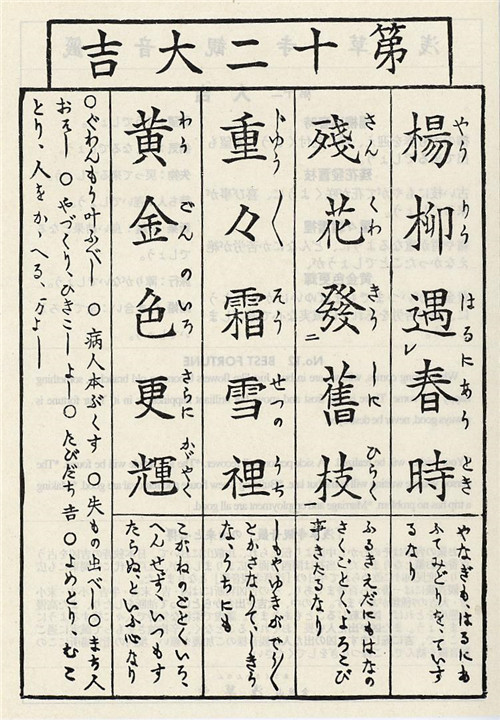 第十二大吉
楊柳遇春時
やうりうはるにあうとき
やなぎも、はるにあ
ふてみどりを、ていす
るなり
殘花發舊技
ざんくわきうしにひらく
ふるきえだにもはなの
さくごとく、よろこび
事きたるなり
重々霜雪裡
ぢゆう〳〵たるさうせつのうち
しもやゆきが
とかさなり
うちにも
黄金色更輝
わうごんのいろさらにかゞやく
こがねなどといろ、
へんせずぞ、いつもす
たらぬ、といふ心なり
○ぐわんもう叶ふべし ○病人本ぶくす ○失もの出べし ○まち人
おそし ○やづくり、ひきこしよし ○たびだち吉 ○よめとり、むこ
とり、人をかゝへる、万よし